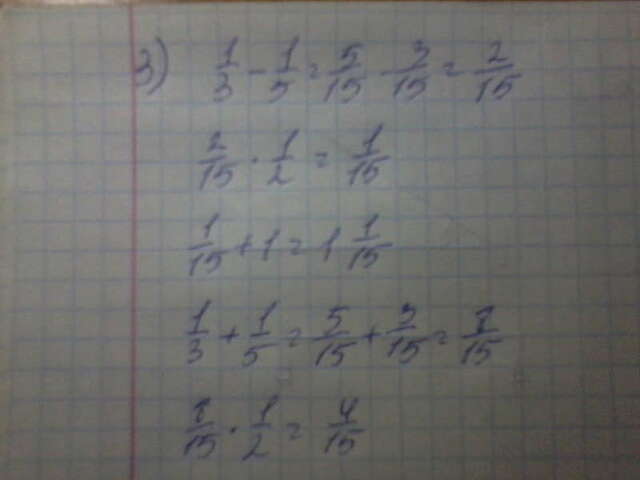 3) 1/3 - 1/5 = 5/15 - 3/15 = 2/15
2/15 · 1/2 = 1/15
1/15 + 1 = 1 1/15
1/3 + 1/5 = 5/15 + 3/15 = 8/15
8/15 · 1/2 = 4/15